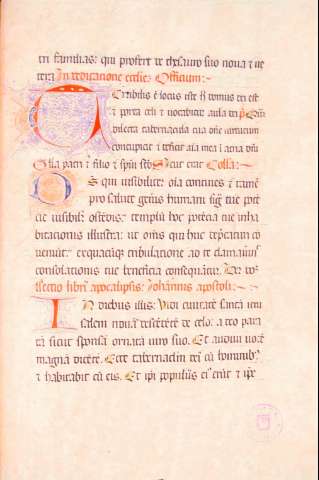 tri familias: qui profert de thesauro suo noua et ue
tera In dedicatione ecclesie Officium:
Terribilis est locus iste hic domus dei est
et porta celi et uocabitur aula dei ps Quam
dilecta tabernacula tua domine uirtutum
concupiscit et deficit anima mea in atria domini
Gloria patri et filio et spiritui sancto Sicut erat Collecta:
Deus qui inuisibiliter omnia contines et tamen
pro salute generis humani signa tue poten
cie uisibiliter ostendis: templum hoc potencia tue inha
bitacionis illustra: ut omnes qui huc deprecaturi co
nueniunt: ex quacumque tribulacione ad te clamauerint
consolationis tue beneficia consequantur. Per
Lectio libri apocalipsis: Iohannis apostoli:
In diebus illis: Vidi ciuitatem sanctam ieru
salem nouam descendentem de celo: a deo para
tam sicut sponsam ornatam uiro suo. Et audiui uocem
magnam dicentem. Ecce tabernaculum dei cum hominibus
et habitabit cum eis. Et ipsi populus eius erunt et ipse